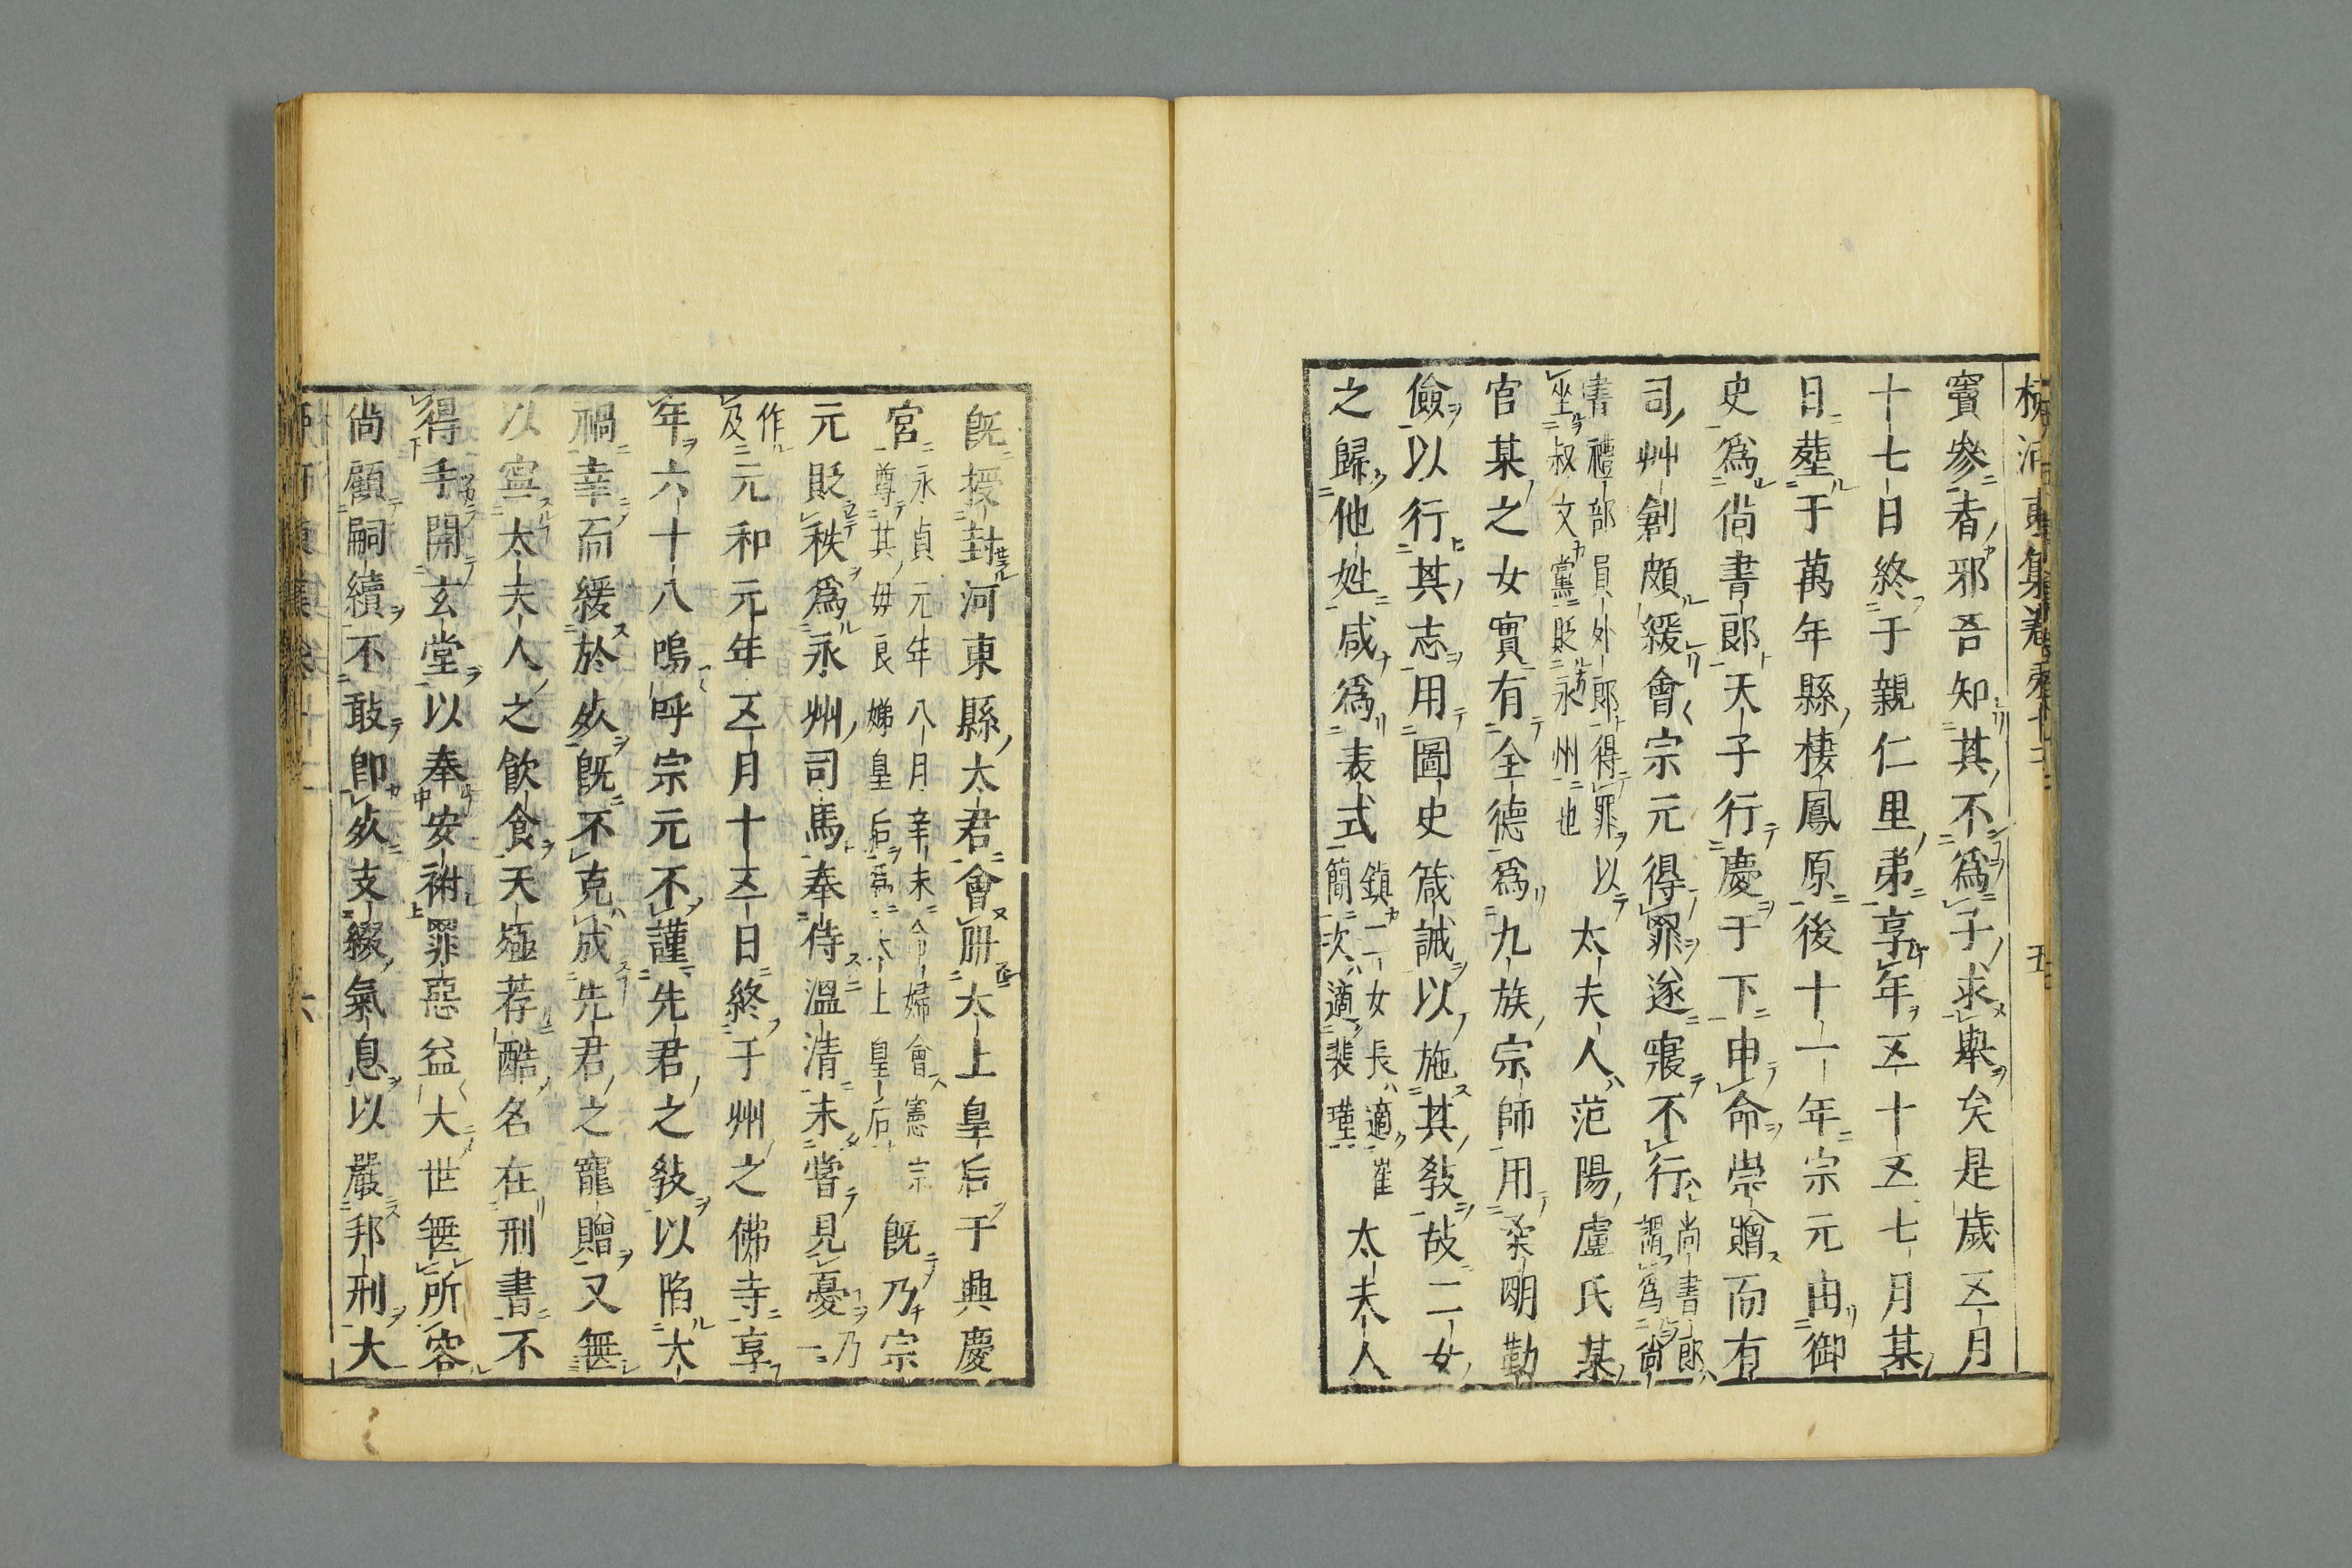 河東集卷第十二 五
竇參者邪吾知其不爲子求舉矣是歲五月
十七日終于親仁里弟享年五十五七月某
日塟于萬年縣棲鳳原後十一年宗元由御
史爲尚書郎天子行慶于下申命崇贈而有
司艸創頗緩會宗元得罪遂寢不行尚書郎謂爲尚
書禮部員外郎得罪以
坐叔文黨貶永州也
太夫人范陽盧氏某
官某之女實有全德爲九族宗師用柔明勤
儉以行其志用圖史箴誡以施其敎故二女
之歸他姓咸爲表式鎮二女長適崔
簡次適裴瑾
太夫人
旣授封河東縣太君會冊太上皇后于興慶
宮永貞元年八月辛未命婦會憲宗
尊其毋良娣皇后爲太上皇后
旣乃宗
元貶秩爲永州司馬奉侍溫凊未嘗見憂乃一
作
及
元和元年五月十五日終于州之佛寺享
年六十八嗚呼宗元不謹先君之敎以陷大
禍幸而緩於㱠旣不克成先君之寵贈又無
以寧太夫人之飮食天殛荐酷名在刑書不
得手開玄堂以奉安祔罪惡益大世無所容
尚顧嗣續不敢卽㱠支綴氣息以嚴邦刑大
河東集卷十二 六